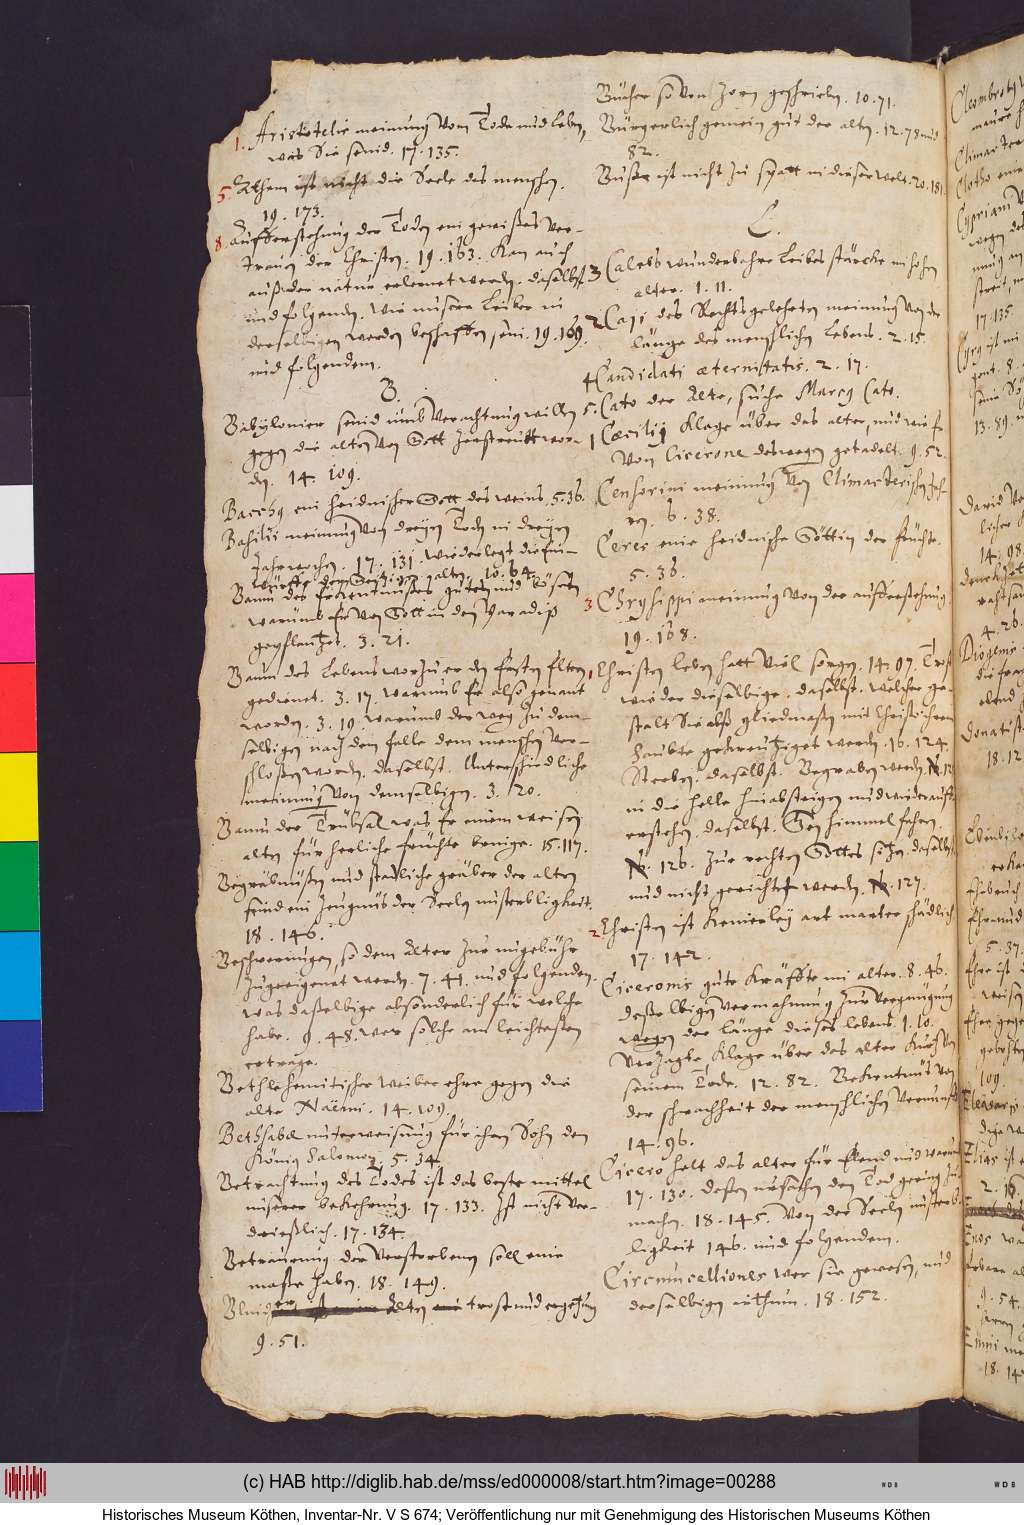 1. Aristotelis meinung vom Tode und leben,
was Sie seind. 17. 135.
5. Athem ist nicht die Seele des menschen.
19. 173.
8. Aufferstehung der Todten ein gewißes ver-
trauen der Christen. 19. 163. Kan auch
auß der natur erlernet werden. daselbst
und folgenden. Wie unsere Leiber in
derselbigen werden beschaffen sein. 19. 169.
und folgendem.
B.
Babylonier seind umb verachtung willen
gegen die alten von Gott zerstreutt wor-
den. 14. 109.
Bacchus ein heidnischer Gott des weins. 5. 36.
Basilii meinung von dreyen Todten in dreyen
Jahrwochen. 17. 131. wiederlegt die ein-
würffe der Geitzigen alten. 10. 64.
Baum des erkentnußes guten und bösen
warumb er von Gott in den Paradiß
gepflantzet. 3. 21.
Baum des Lebens worzu er den ersten Eltern
gedienet. 3. 17. warumb er also genant
worden. 3. 19. warumb der weg zu dem-
selbigen nach dem falle dem menschen ver-
schloßen worden. daselbst. Unterschiedliche
meinung von demselbigen. 3. 20.
Baum der Trübsal was er einem weisen
alten für herliche früchte bringe. 15. 117.
Begräbnüßen und stadliche gräber der alten
seind ein Zeugnüs der Seelen unsterbligkeit.
18. 146.
Beschwerungen, so dem Alter zur ungebühr
zugeeigenet werden. 7. 41. und folgenden.
was daßelbige absonderlich für welche
habe. 9. 48. wer solche am leichtesten
ertrage.
Bethlehemitischer weiber ehre gegen die
alte Naëmi. 14. 109.
Bethsabæ unterweisung für ihren Sohn den
König Salomon. 5. 34.
Betrachtung des Todes ist das beste mittel
unserer bekehrung. 17. 133. Ist nicht ver-
drießlich. 17. 134.
Betraurung der Verstorbenen soll eine
maße haben. 18. 149.
Blinder Alten trost und ergetzung
9. 51.
Bücher so von Zorn geschrieben. 10. 71.
Bürgerlich gemein gut der alten. 12. 78 und
82.
Busse ist nicht zu spatt in dieser welt. 20. 181.
C.
3 Calebs wunderbahre leibes stärcke in hohen
alter. 1. 11.
2 Caji des Rechtsgelehrten meinung von der
länge des menschlichen lebens. 2. 15.
4 Candidati æternitatis. 2. 17.
5. Cato der Alte, suche Marcus Cato.
1 Cæcilij klage über das alter, und wie er
von Cicerone deswegen getadelt. 9. 52.
Censorini meinung von Climacterischen Jah-
ren. 6. 38.
Ceres eine heidnische Göttin der früchte.
5. 36.
3 Chrysippi meinung von der aufferstehung.
19. 168.
1 Christen leben hatt viel sorgen. 14. 97. Trost
wieder dieselbige. daselbst. welcher ge-
stalt Sie als gliedmaßen mit Christi ihrem
Haubte gekreutziget werden. 16. 124.
Sterben. daselbst. Begraben werden.
in die helle hinabsteigen und wieder auff-
erstehen. daselbst. Gen himmel fahren.
126. Zur rechten Gottes sitzen. daselbst
und nicht gerichtet werden. 127.
2 Christen ist keinerley art marter schädlich.
17. 142.
Ciceronis gute kräffte im alter. 8. 46.
deßelbigen vermahnung zur vergnügung
wegen der länge dieses lebens. 1. 10.
verzagte klage über das alter kurtz vor
seinem Tode. 12. 82. Bekentnüs von
der schwachheit der menschlichen vernunfft
14. 96.
Cicero helt das alter für Elend und warum
17. 130. deßen ursachen den Tod gering zu
machen. 18. 145. von der Seelen unsterb-
ligkeit 146. und folgendem.
Circumcelliones wer sie gewesen, und
derselbigen irthum. 18. 152.
(c) HAB http://diglib.hab.de/mss/ed000008/start.htm?image=00288
WDB
WDB
Historisches Museum Köthen, Inventar-Nr. V S 674; Veröffentlichung nur mit Genehmigung des Historischen Museums Köthen